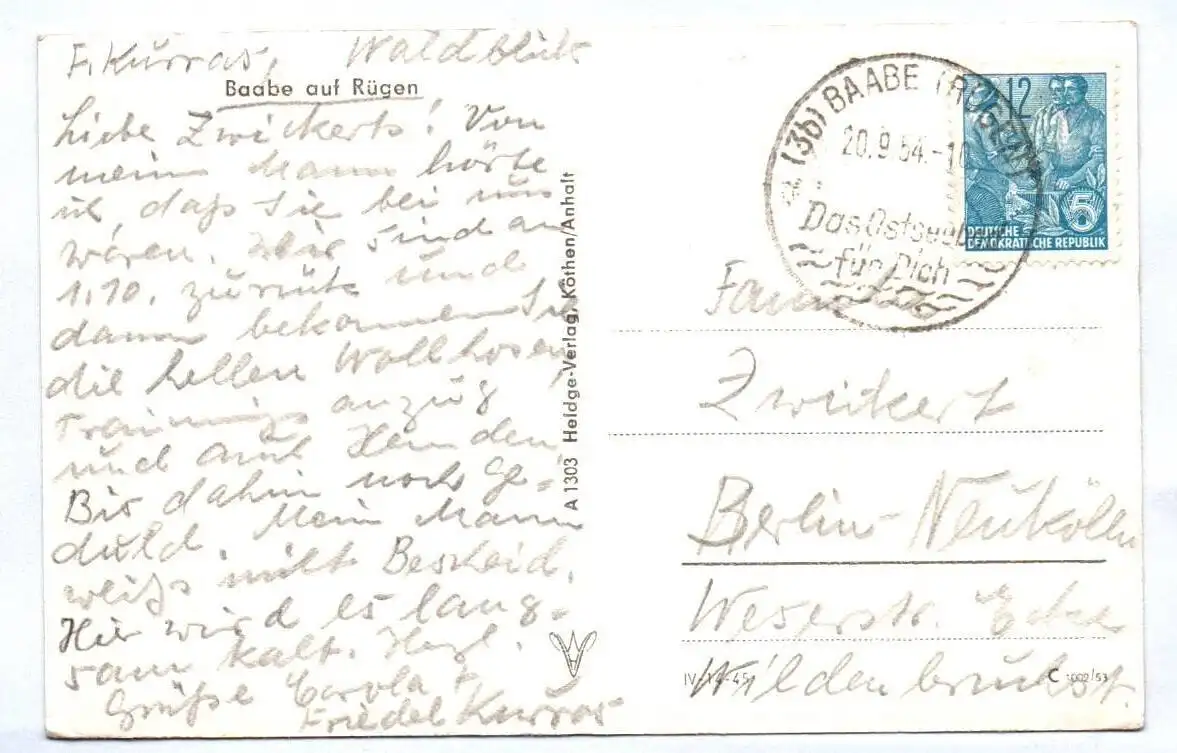 F. Kurras, Waldblick
Baabe auf Rügen
Liebe Zwickerts! Von
meinem Mann hörte
ich, daß Sie bei uns
waren. Wir sind am
1.10. zurück und
dann bekommen Sie
die hellen Wollhosen,
Trainingsanzug
und auch Hemden.
Bis dahin noch Ge-
duld. Mein Mann
weiß nicht Bescheid.
Hier wird es lang-
sam kalt. Herzl.
Grüße Carola +
Friedel Kurras
A 1303 Heldge-Verlag, Köthen/Anhalt
(3b) BAABE (RÜGEN)
20.9.54.-1
Das Ostseebad
für Dich
12
5
DEUTSCHE
DEMOKRATISCHE REPUBLIK
Familie
Zwickert
Berlin-Neukölln
Weserstr. Ecke
Wildenbruchst.
IV/14-45
C 1002/53